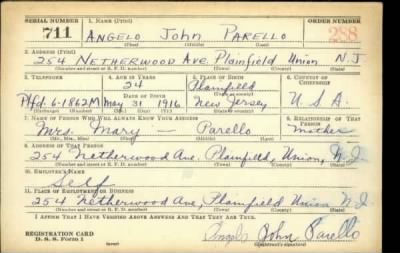 SERIAL NUMBER 1. NAME (Print) ORDER NUMBER
711 ANGELO JOHN PARELLO 288
(First) (Middle) (Last)
2. ADDRESS (Print)
254 NETHERWOOD AVE. Plainfield Union N.J
(Number and street or R. F. D. number) (Town) (County) (State)
3. TELEPHONE 4. AGE IN YEARS 5. PLACE OF BIRTH 6. COUNTRY OF CITIZENSHIP
24 Plainfield
DATE OF BIRTH
Plfd. 6-1862M May 31 1916 New Jersey U.S.A.
(Exchange) (Number) (Mo.) (Day) (Yr.) (State or country)
7. NAME OF PERSON WHO WILL ALWAYS KNOW YOUR ADDRESS 8. RELATIONSHIP OF THAT PERSON
Mrs. Mary — Parello Mother
(Mr., Mrs., Miss) (First) (Middle) (Last)
9. ADDRESS OF THAT PERSON
254 Netherwood Ave. Plainfield, Union, N.J.
(Number and street or R. F. D. number) (Town) (County) (State)
10. EMPLOYER'S NAME
Self
11. PLACE OF EMPLOYMENT OR BUSINESS
254 Netherwood Ave, Plainfield Union N.J.
(Number and street or R. F. D. number) (Town) (County) (State)
I AFFIRM THAT I HAVE VERIFIED ABOVE ANSWERS AND THAT THEY ARE TRUE.
REGISTRATION CARD
D. S. S. Form 1 (over) Angelo John Parello
(Registrant's signature)